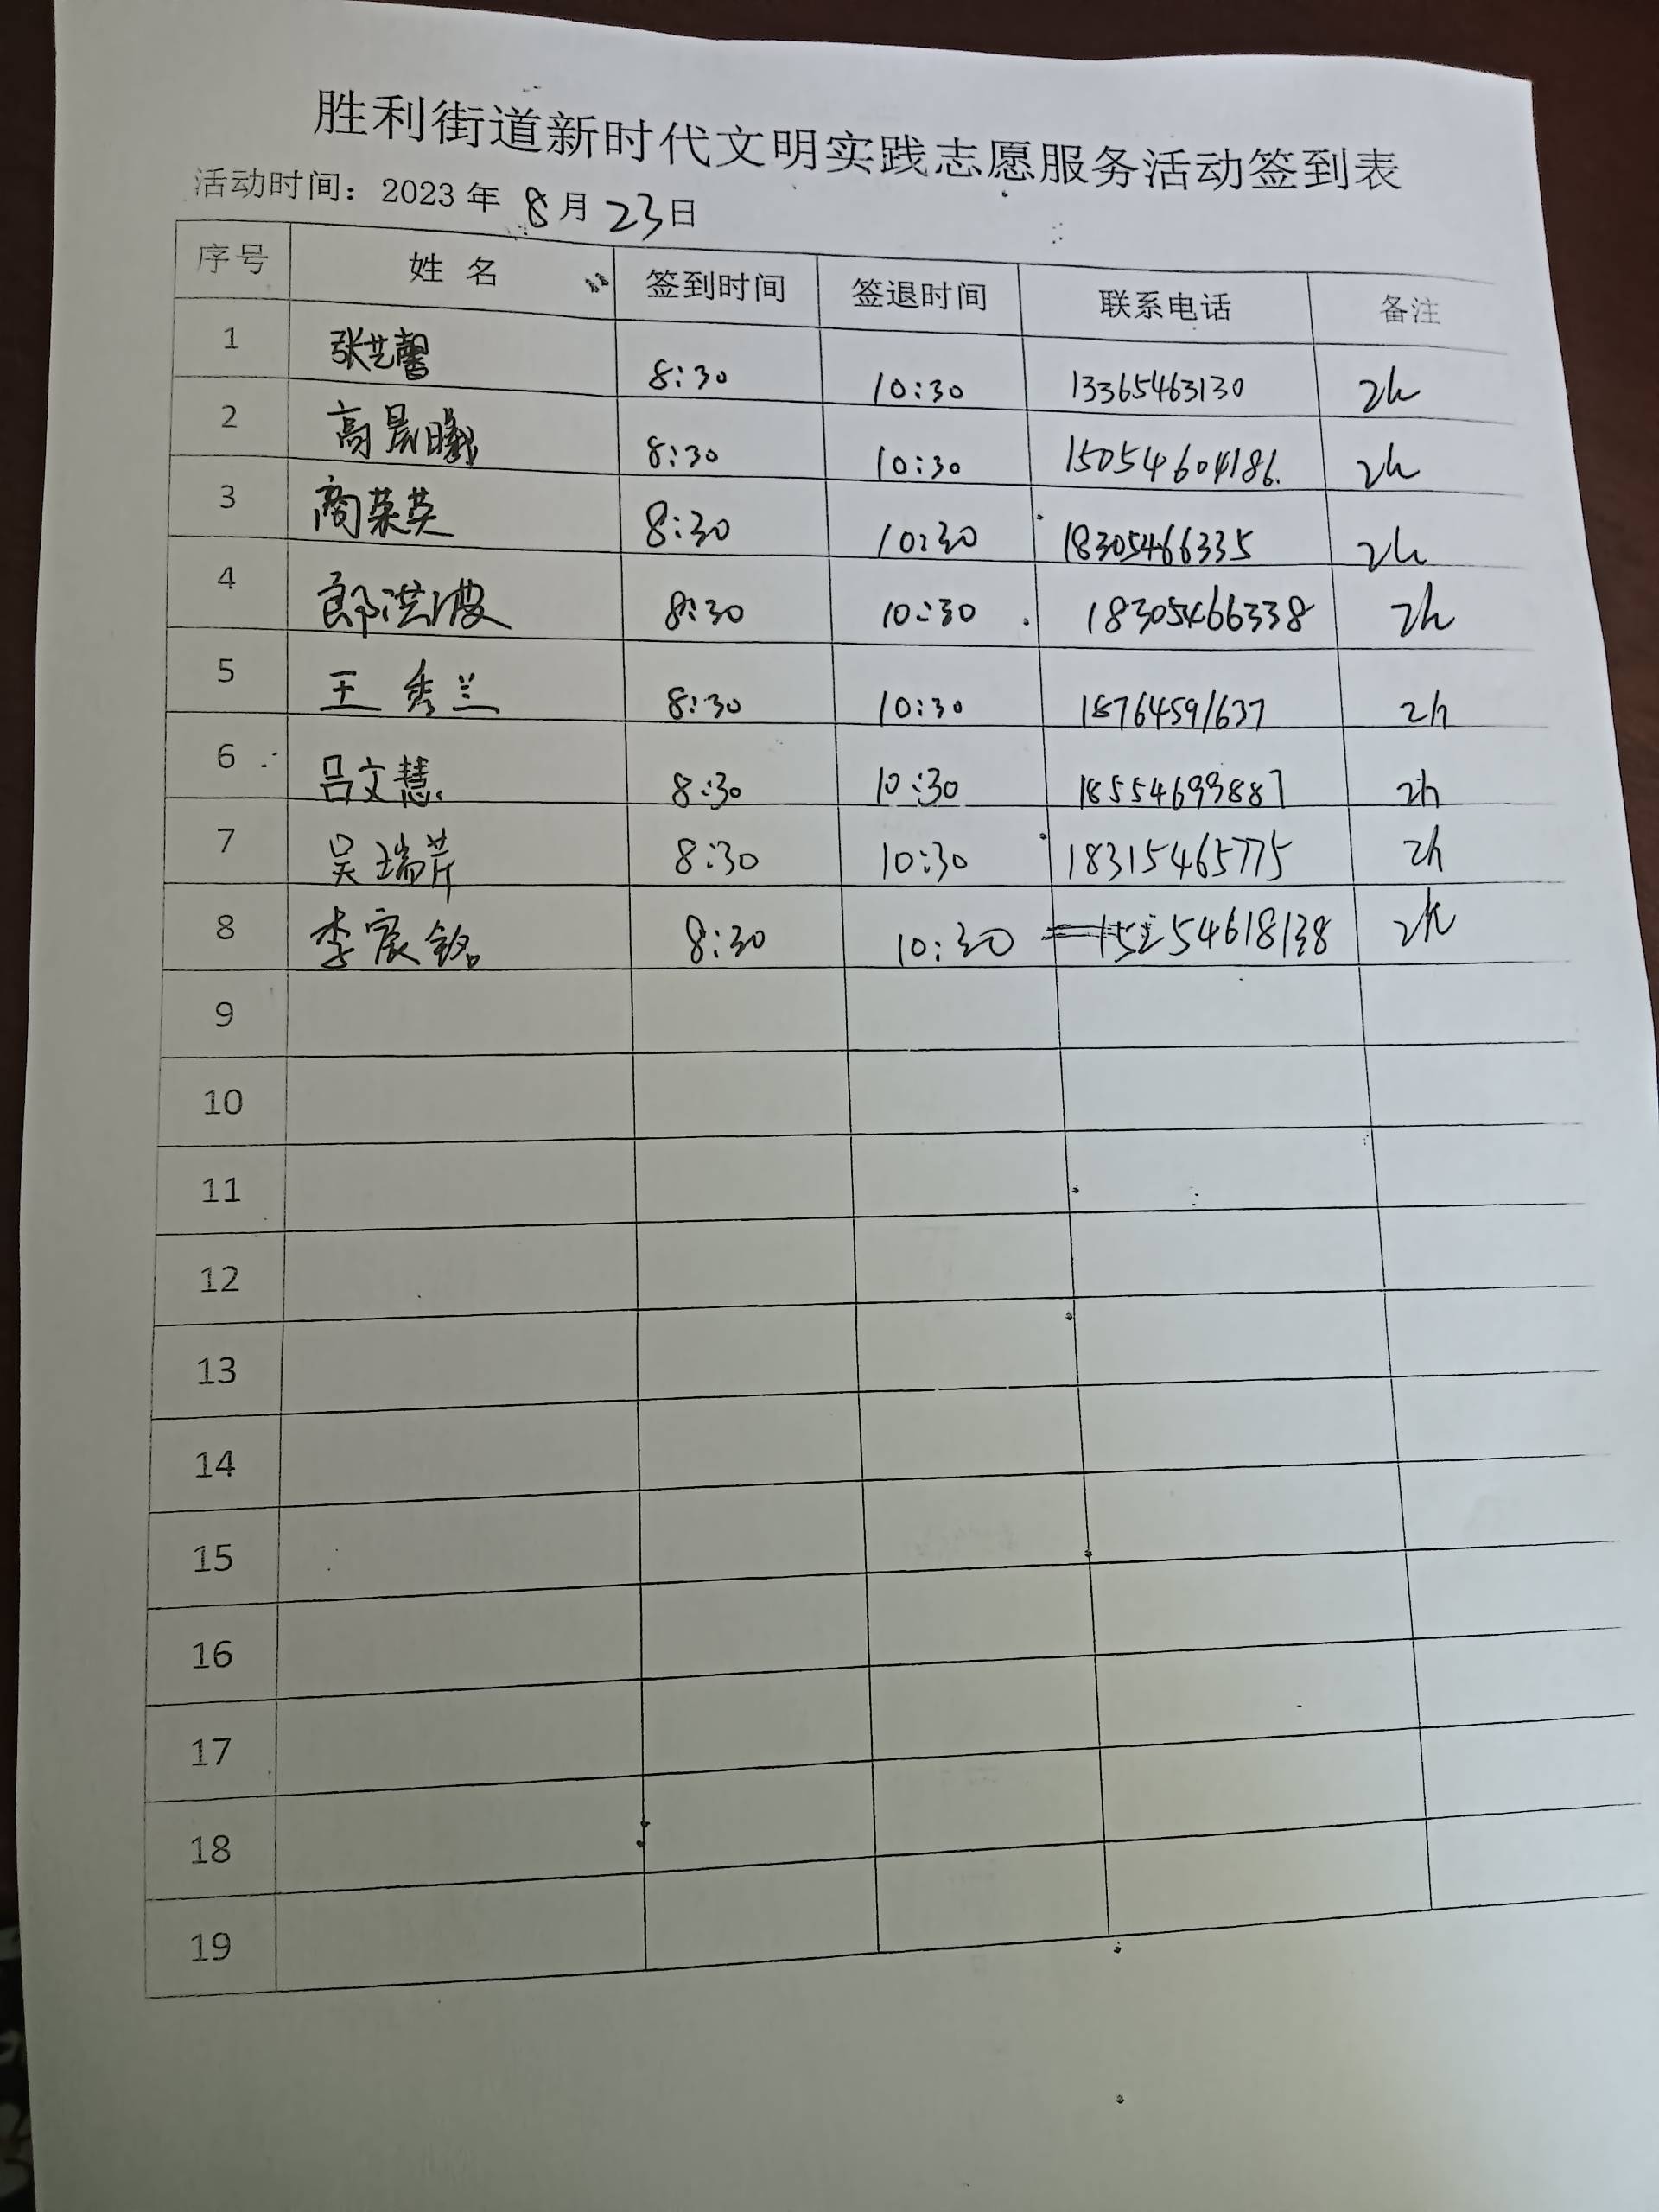 胜利街道新时代文明实践志愿服务活动签到表
活动时间：2023 年 8 月 23 日
序号 姓 名 签到时间 签退时间 联系电话 备注
1 张艺馨 8:30 10:30 13365463130 2h
2 高晨曦 8:30 10:30 15054604186. 2h
3 商荣英 8:30 10:30 18305466335 2h
4 郎洪波 8:30 10:30 18305466338 2h
5 王秀兰 8:30 10:30 18764591637 2h
6 吕文慧. 8:30 10:30 18554699887 2h
7 吴瑞芹 8:30 10:30 18315465775 2h
8 李宸铭 8:30 10:30 15254618138 2h
9
10
11
12
13
14
15
16
17
18
19